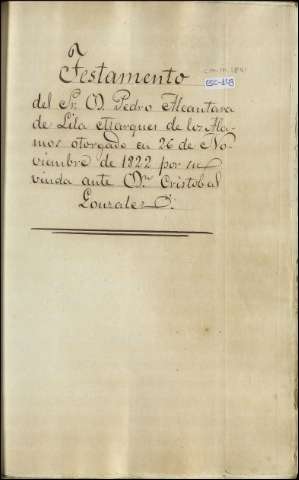 Testamento
del Sr. D. Pedro Alcantara
de Lila Marques de los Ala-
mos otorgado en 26 de No-
viembre de 1822 por su
viuda ante Dn. Cristobal
Gonzalez
ESC-